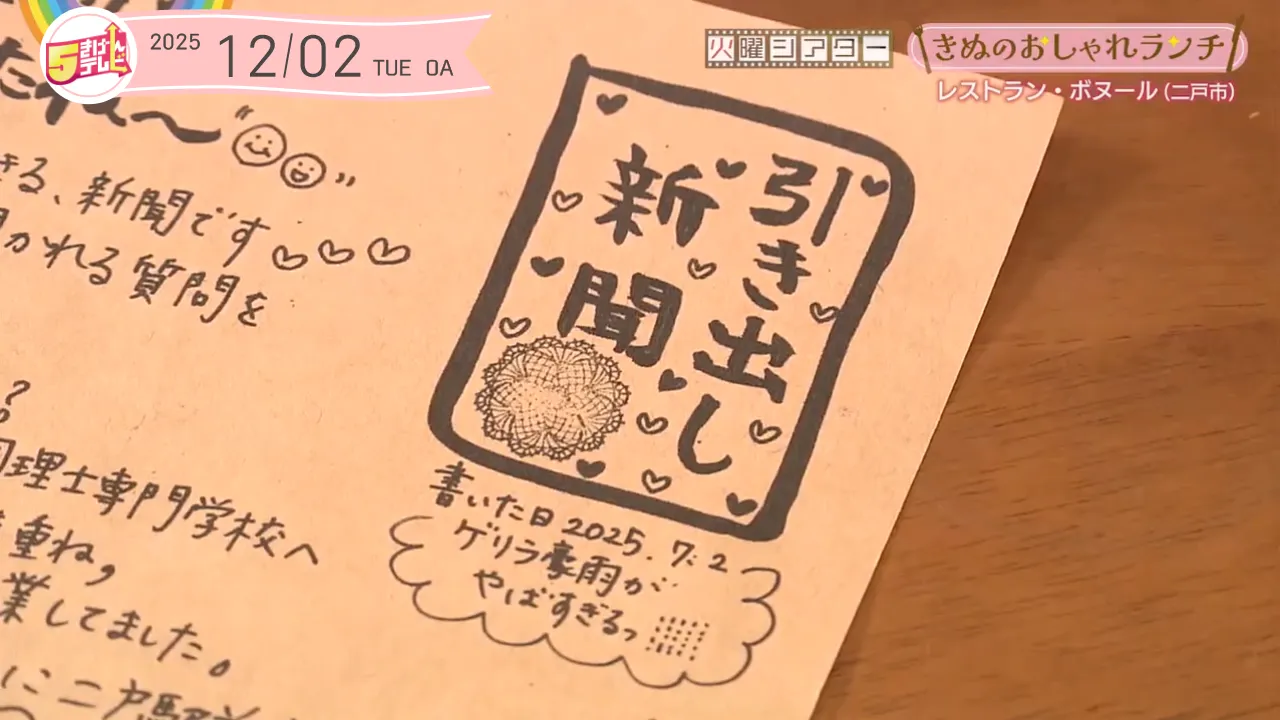 5きげんテレビ
2025 12/02 TUE OA
火曜シアター
きぬのおしゃれランチ
レストラン・ボヌール(二戸市)
引き出し
新聞
書いた日 2025.7.2
ゲリラ豪雨が
やばすぎるっ
きる、新聞です♡♡♡
かれる質問を
?
理士専門学校へ
重ね,
業してました。
に二戸駅前